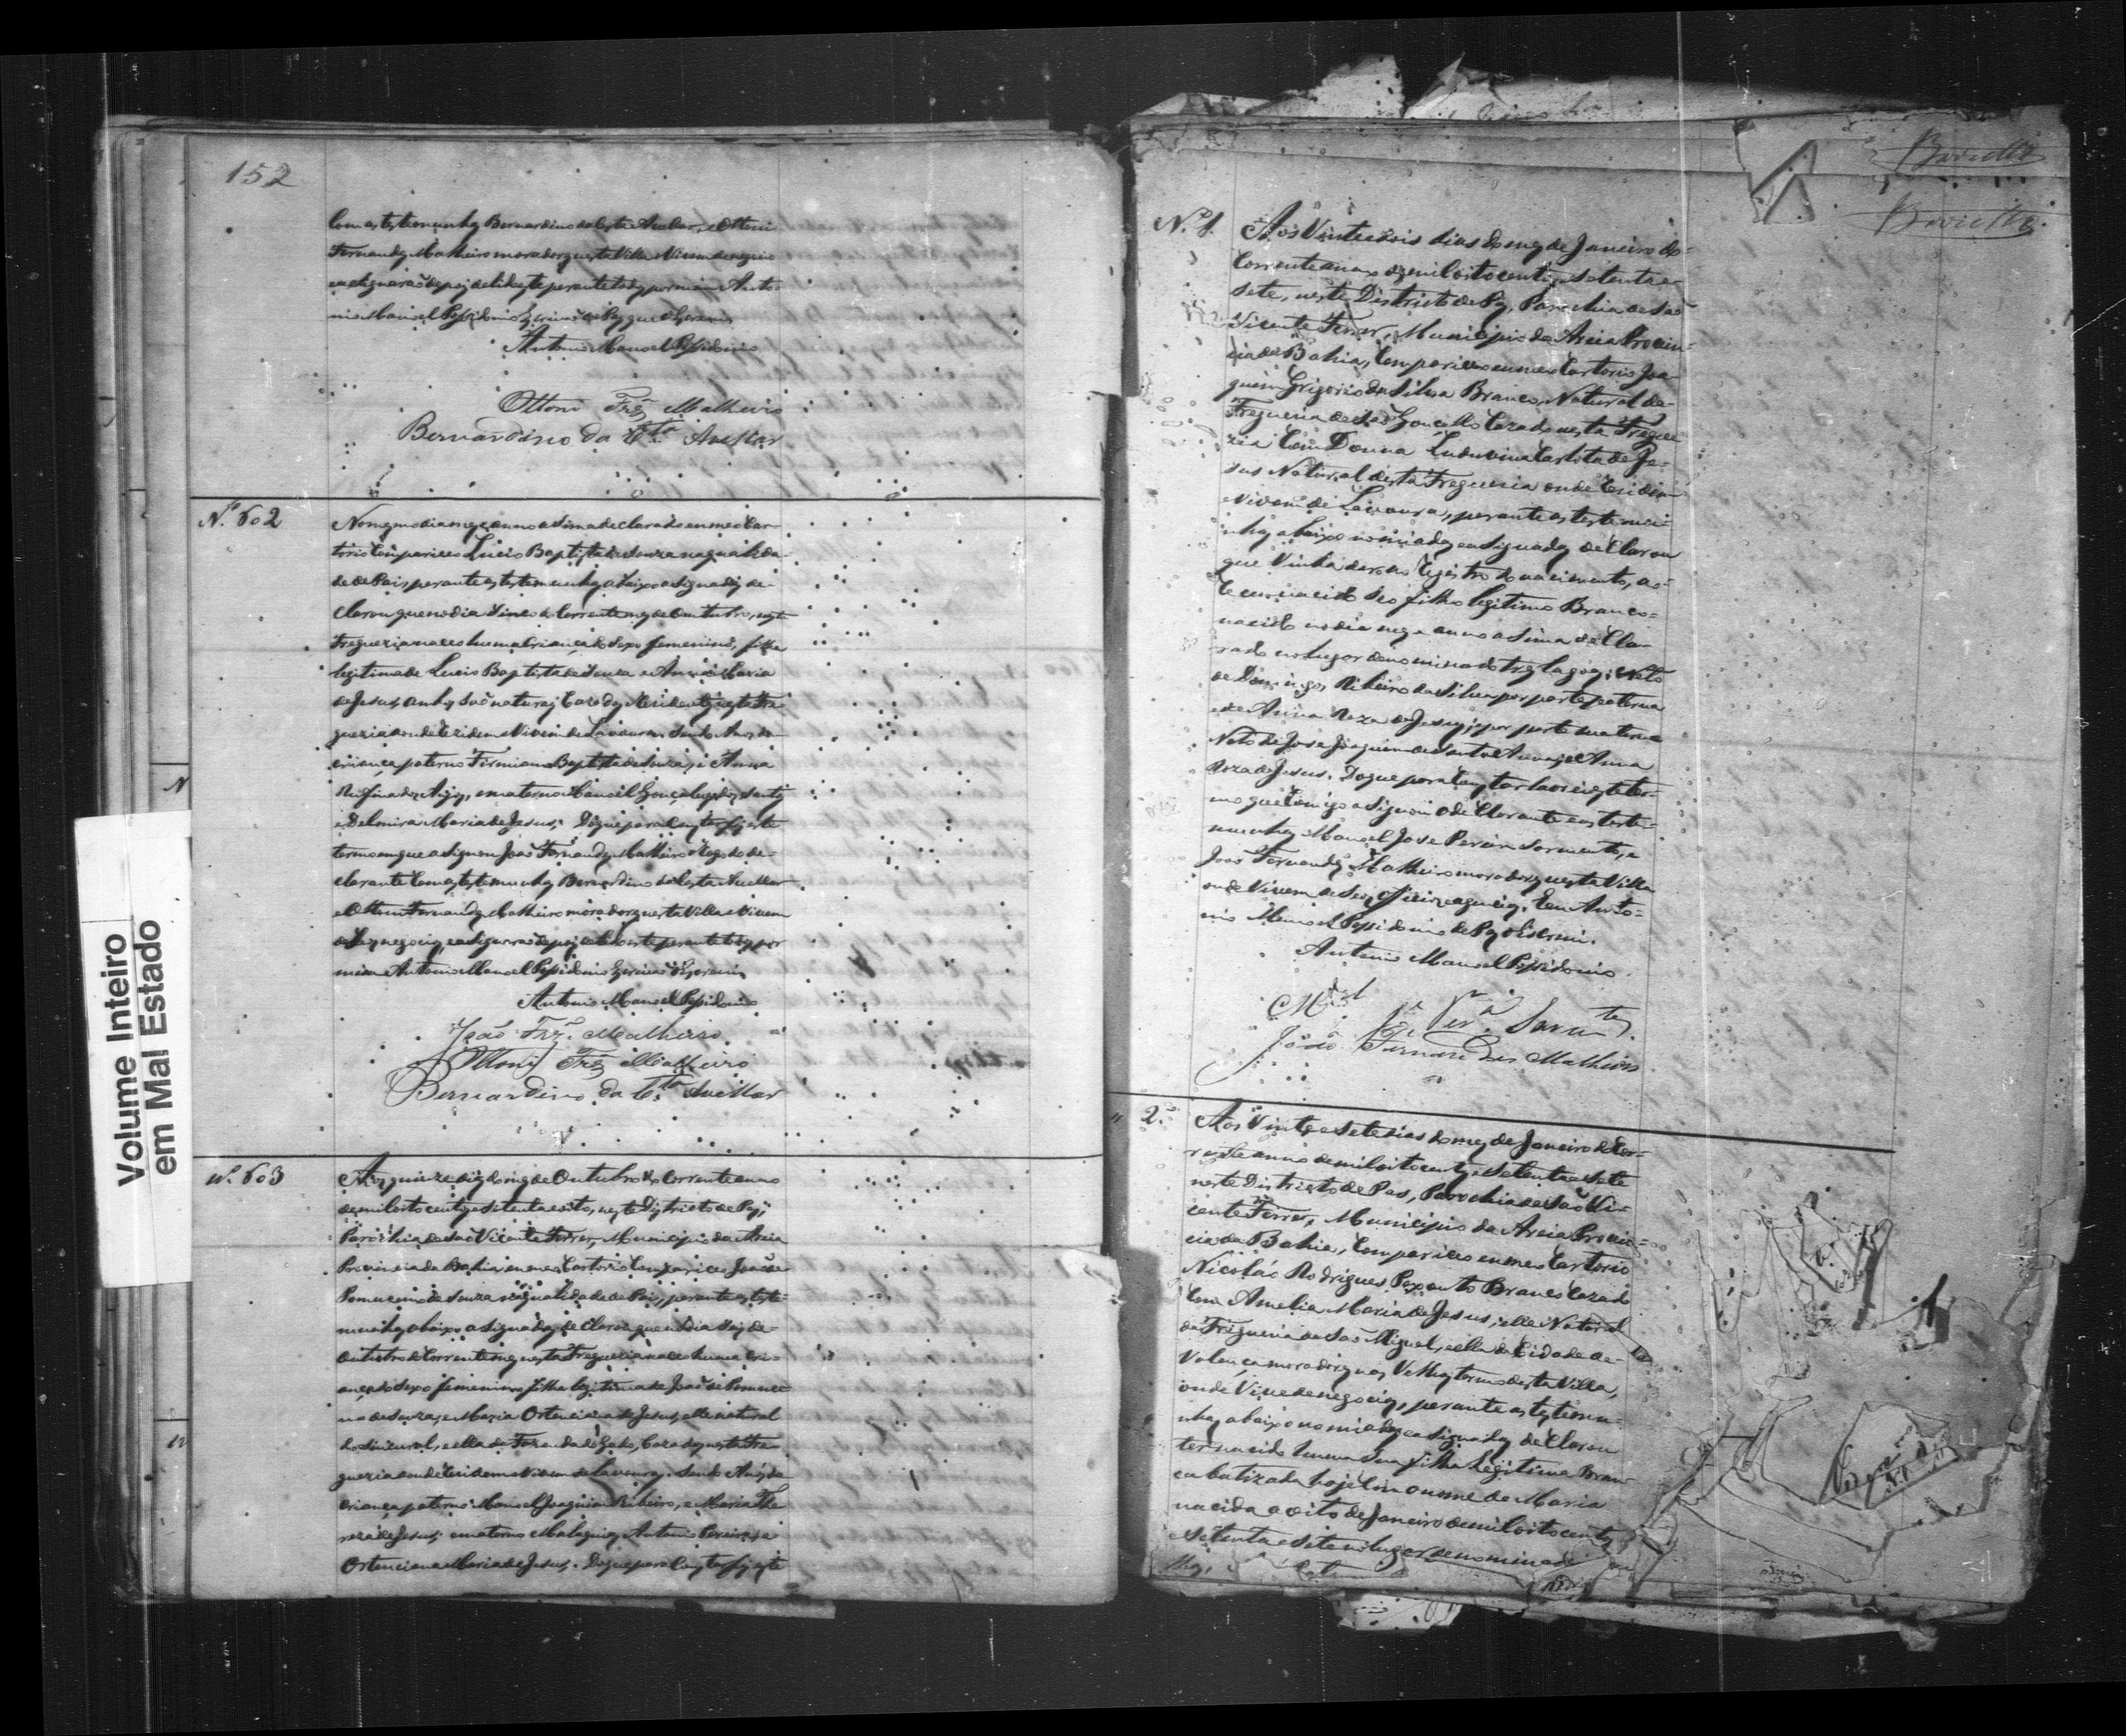 152
Com as testemunhas Bernardino da Costa Avellar, e Ottoni
Fernandes Malheiro moradores nesta Villa e Vivem de negocio
e asignarão depois de lido este perante todos por mim Anto
nio Manoel Possidonio Escrivão de Paz que o Escrevi
Antonio Manoel Possidonio
Ottoni Frz Malheiro
Bernardino da Cta Avellar
N.º 602
No mesmo dia mez e anno a Sima declarado em meo Car
torio Compareceo Lucio Baptista de Souza na qualida
de de Pai, perante as testemunhas abaixo asignadas de
clarou que no dia Sinco do Corrente mez de Outubro, nesta
Freguezia nasceo huma Criança do Sexo femenino, filha
legitima de Lucio Baptista de Souza e Anna Maria
de Jesus, ambos são naturaes Cazados e Residentes nesta Fre
guezia aonde rezidem e Vivem de Lavouras, Sendo Avós da
criança paterno Firmiano Baptista de Souza, e Anna
Rufina dos Anjos, e materno Manoel Gonçalves dos Santos
e Delmira Maria de Jesus; Do que para Constar fiz este
termo em que asignou João Fernandes Malheiro a Rogo do de-
clarante Com as testemunhas Bernardino da Costa Avellar
e Ottoni Fernandes Malheiro moradores nesta Villa e Vivem
de Seos negocios, e asignarão depois de lido este perante todos por
mim Antonio Manoel Possidonio Escrivão o Escrevi
Antonio Manoel Possidonio
João Frz. Malheiro
Ottoni Frz Malheiro
Bernardino da Cta Avellar
N.º 603
Aos quinze dias do mez de Outubro do Corrente anno
de mil oito centos e Setenta e oito, neste Districto de Paz,
Parochia de São Vicente Ferrer, Municipio da Areia
Provincia da Bahia em meo Cartorio Compareceo João
Pomuceno de Souza na qualidade de Pai, perante as teste-
munhas abaixo asignadas, declarou que no dia Seis de
Outubro do Corrente mez nesta Freguezia nasceo huma cri-
ança do Sexo femenino filha legitima de João Pomuce
no de Souza, e Maria Ortenciana de Jesus, elle natural
e ella da Fazenda do Gado, Cazados nesta Fre
guezia aonde rezidem e Vivem de Lavouras. Sendo Avós da
Criança paterno Manoel Joaquim Ribeiro, e Maria The
reza de Jesus; e materno Malaquias Antonio Pereira, e
Ortenciana Maria de Jesus. Do que para Constar fiz este
Volume Inteiro
em Mal Estado
N.º 1.
Aos Vinte e dois dias do mez de Janeiro do
Corrente anno de mil oito centos e Setenta e
Sete, neste Districto de Paz, Parochia de São
Vicente Ferrer, Municipio da Areia Provin-
cia da Bahia, Compareceo em meo Cartorio Joa-
quim Grigorio da Silva Branco, Natural da
Freguezia de São Gonçallo Cazado nesta Fregue
zia Com Donna Luduvina Carlota de Je-
sus Natural desta Freguezia onde Rezidem
e Vivem de Lavouras, perante as testemu-
nhas abaixo nomiadas e asignadas declarou
que Vinha dar ao Registro do nacimento, ao
Recemnacido seo filho legitimo Branco
nacido no dia mez e anno a Sima decla-
rado no lugar denominado tres lagoas: Neto
de Domingos Ribeiro da Silva por parte paterna
e de Anna Roza de Jesus; e por parte materna
Neto de José Joaquim de Santa Anna, e Anna
Roza de Jesus. Do que para Constar lavrei este ter-
mo que Comigo asignou o declarante e as teste-
munhas Manoel José Pereira Sarmento, e
João Fernandes Malheiro moradores nesta Villa
onde Vivem de Seos officios e negocios. Eu Anto-
nio Manoel Possidonio de Paz o Escrevi.
Antonio Manoel Possidonio
Mel Je Pera Sarmto
João Fernandes Malheiro
2.º
Aos Vinte e Sete dias do mez de Janeiro do Cor-
rente anno de mil oito centos e Setenta e Sete
neste Districto de Paz, Parochia de São Vi-
cente Ferrer, Municipio da Areia Provin-
cia da Bahia, Compareceo em meo Cartorio
Nicoláo Rodrigues Pexouto Branco Cazado
Com Amelia Maria de Jesus, elle Natural
da Freguezia de São Miguel, e ella da Cidade de
Valença moradores nas Velhas termo desta Villa,
onde Vive de negocios, perante as testemu-
nhas abaixo nomiadas e asignadas declarou
ter nacido huma Sua filha Legitima Bran-
ca batizada hoje Com o nome de Maria
nacida a oito de Janeiro de mil oito centos
e Setenta e Sete no lugar denominado